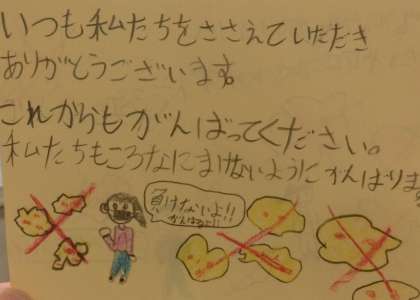 いつも私たちをささえていただき
ありがとうございます。
これからもがんばってください。
私たちもころなにまけないようにがんばります
負けないよ!!
がんばるよ!!